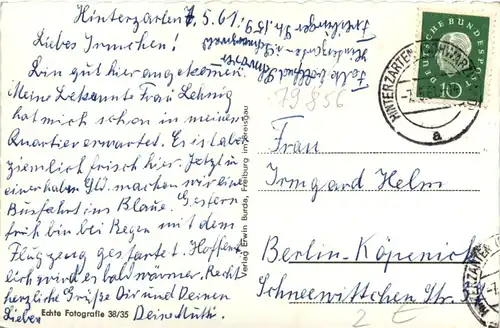 Hinterzarten 7.5.61.
Liebes Irmchen!
Bin gut hier angekommen.
Meine Bekannte Frau Lehnig
hat mich schon in meinem
Quartier erwartet. Es ist aber
ziemlich frisch hier. Jetzt in
einer haben Std. machen wir eine
Busfahrt ins Blaue. Gestern
früh bin bei Regen mit dem
Flugzeug gestartet. Hoffent-
lich wird es bald wärmer. Recht
herzliche Grüße Dir und Deinen
Lieben Deine Mutti.
Echte Fotografie 38/35
Verlag Erwin Burda, Freiburg im Breisgau
79 856
DEUTSCHE BUNDESPOST
10
HINTERZARTEN
a
Frau
Irmgard Helm
Berlin-Köpenick
Schneewittchen Str.
HINTERZARTEN